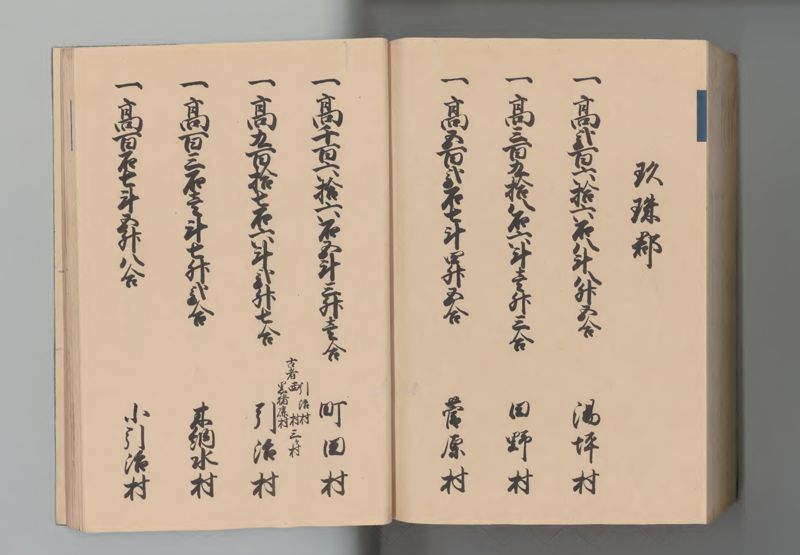 玖珠郡
一高弐百六拾六石八斗八升五合 湯坪村
一高三百九拾八石六斗壱升三合 田野村
一高五百弐石七斗四升五合 菅原村
一高千百六拾六石五斗三升壱合 町田村
一高九百拾七石六斗弐升七合 引治村
古者 引治村
村三ヶ村
黒猪鹿村
一高百三石壱斗七升弐合 末綱水村
一高百石七斗五升八合 小引治村